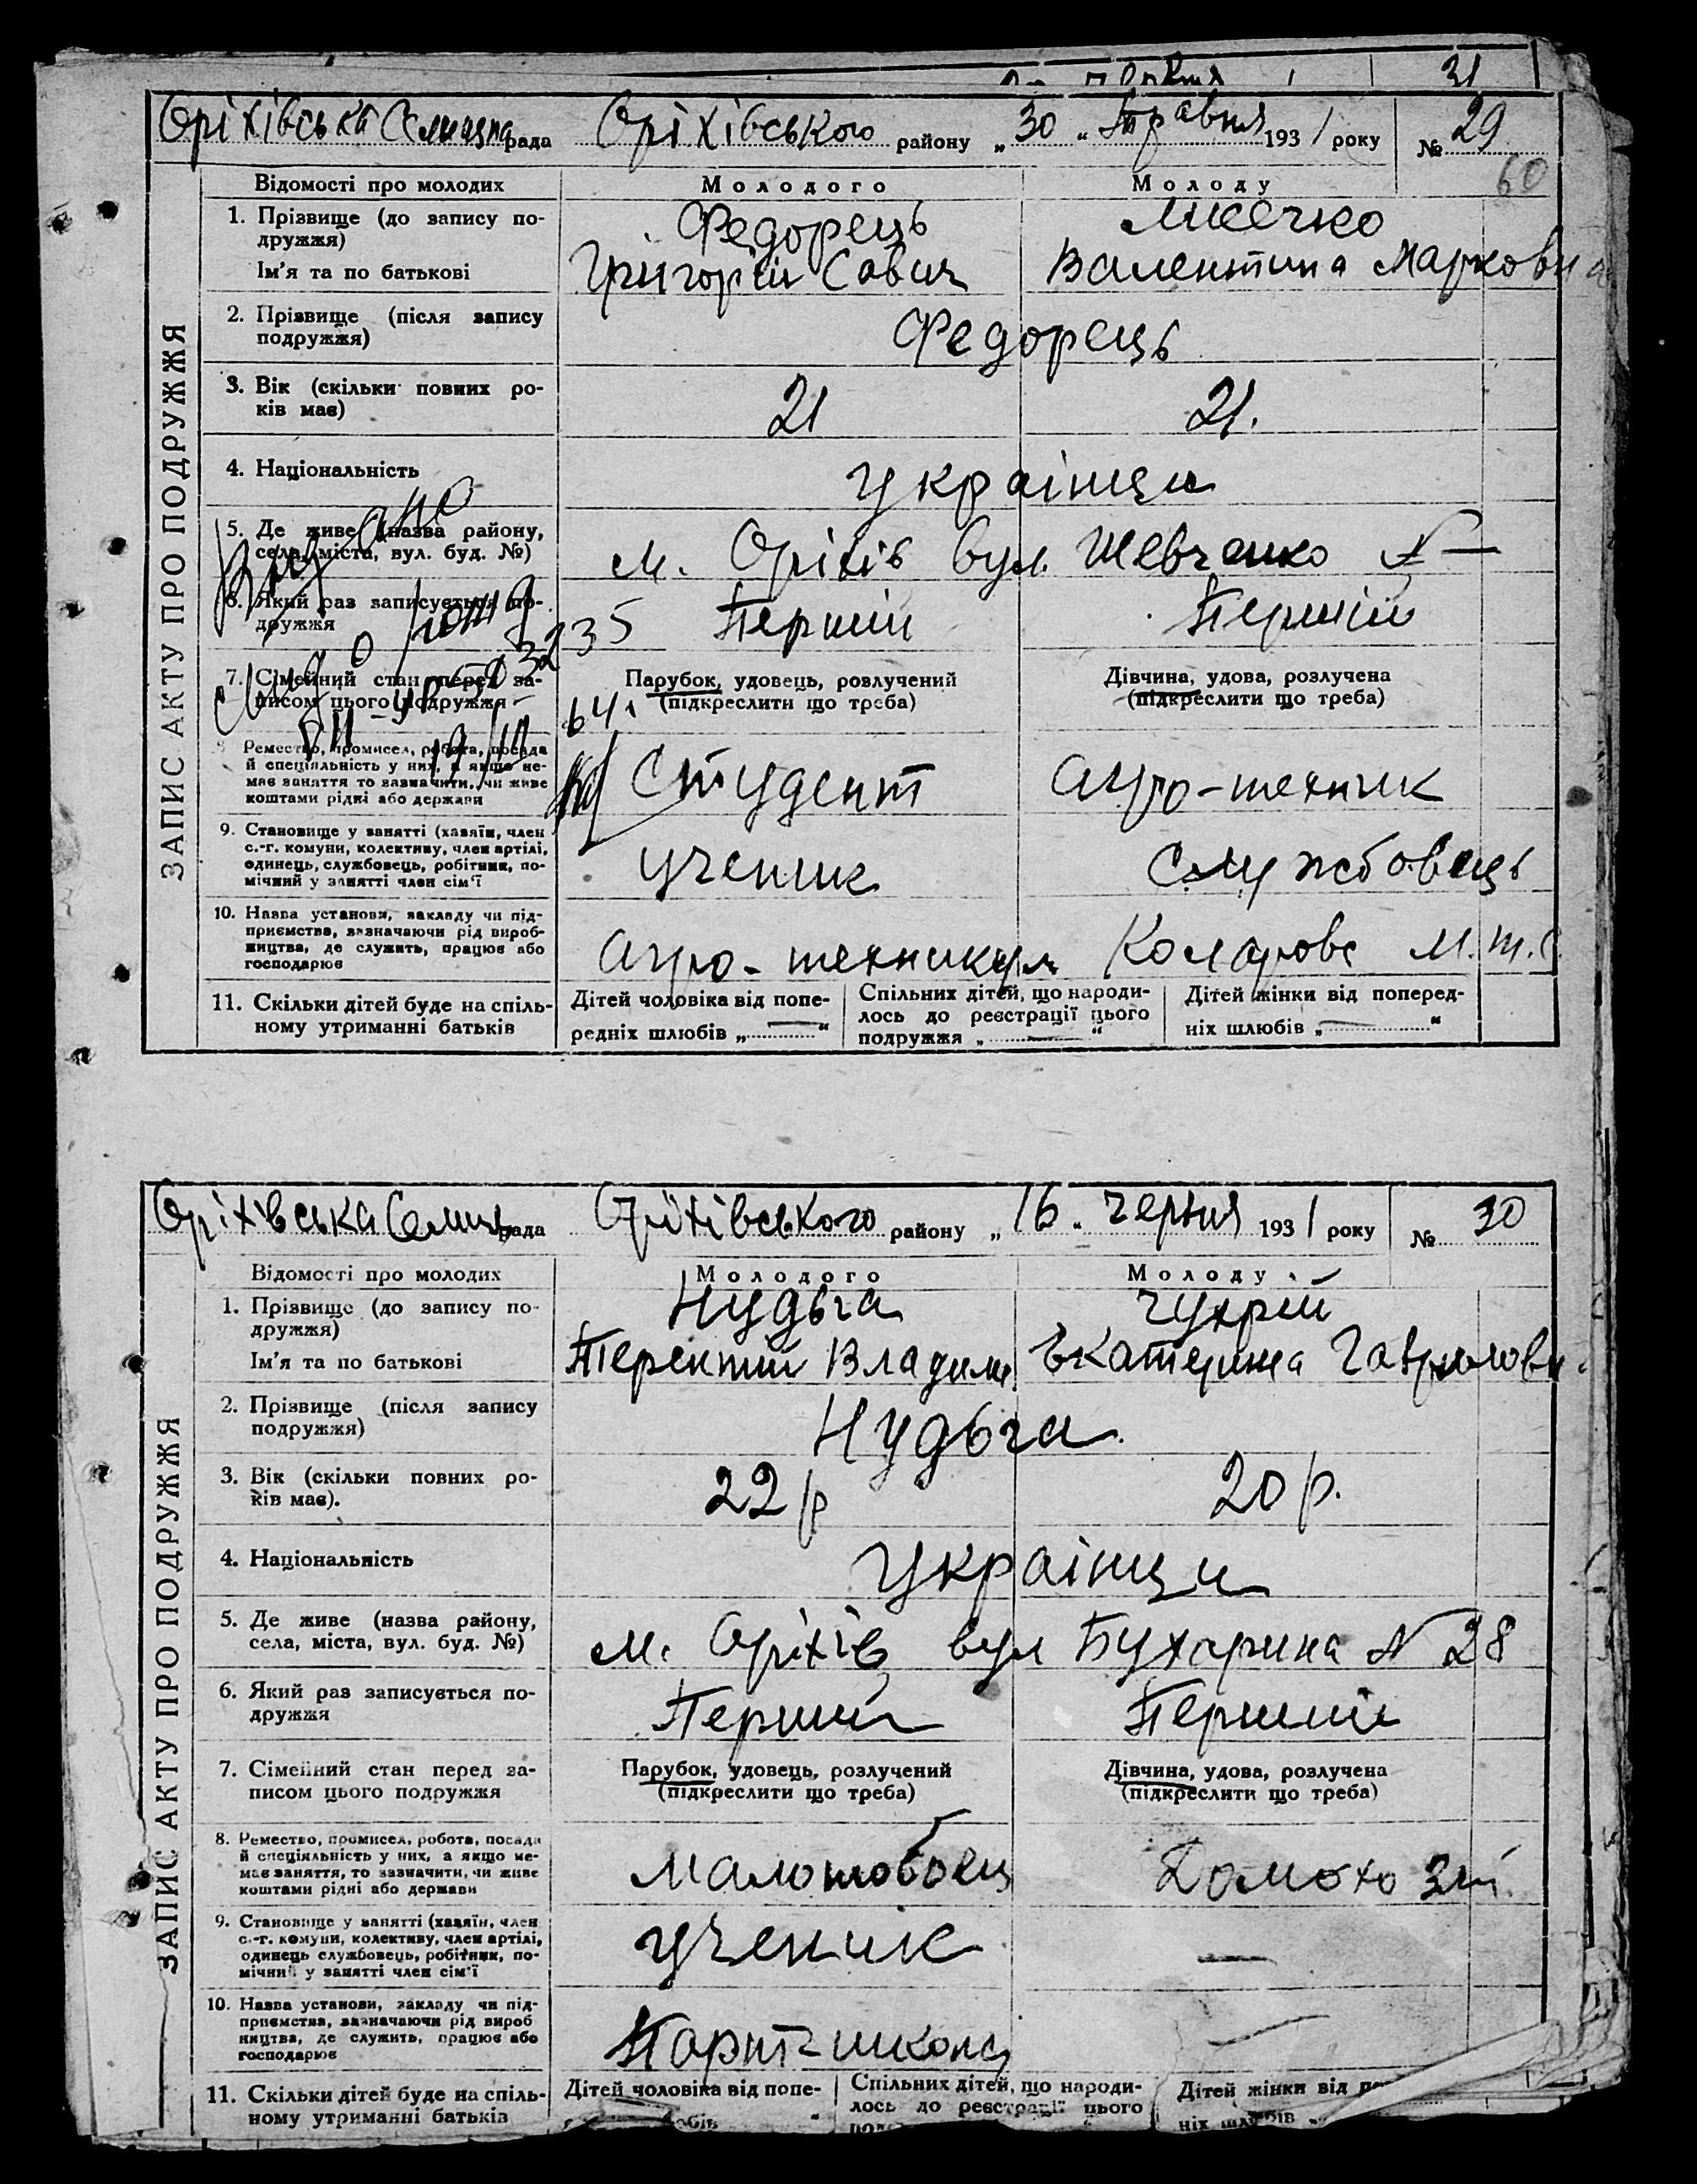 31
Оріхівська Селищна рада Оріхівського району „30“ Травня 1931 року № 29
60
ЗАПИС АКТУ ПРО ПОДРУЖЖЯ
Відомості про молодих Молодого Молоду
1. Прізвище (до запису по-
дружжя) Федорець
Ім'я та по батькові Григорій Савич Валентина Маркови
2. Прізвище (після запису
подружжя) Федорець
3. Вік (скільки повних ро-
ків має) 21 21.
4. Національність українци
5. Де живе (назва району,
села, міста, вул. буд. №) м. Оріхів вул. Шевченко № —
6. Який раз записується по-
дружжя Перший Перший
7. Сімейний стан перед за-
писом цього подружжя
Парубок, удовець, розлучений
(підкреслити що треба)
Дівчина, удова, розлучена
(підкреслити що треба)
8 Ремество, промисел, робота, посада
й спеціяльність у них, а якщо не-
має заняття то зазначити, чи живе
коштами рідні або держави
Студент агро-техник
9. Становище у занятті (хазяїн, член
с.-г. комуни, колективу, член артілі,
одинець, службовець, робітник, по-
мічний у занятті член сім'ї
ученик Службовець
10. Назва установи, закладу чи під-
приємства, зазначаючи рід вироб-
ництва, де служить, працює або
господарює
агро-техникум М.т.с.
11. Скільки дітей буде на спіль-
ному утриманні батьків
Дітей чоловіка від попе-
редніх шлюбів „ — “
Спільних дітей, що народи-
лось до реєстрації цього
подружжя „ — “
Дітей жінки від поперед-
ніх шлюбів „ — “
Оріхівська Селищ рада Оріхівського району „16“ червня 1931 року № 30
ЗАПИС АКТУ ПРО ПОДРУЖЖЯ
Відомості про молодих Молодого Молоду
1. Прізвище (до запису по-
дружжя) Нудьга Чухрій
Ім'я та по батькові Терентий Владим. Екатерина Гавриловн.
2. Прізвище (після запису
подружжя) Нудьга
3. Вік (скільки повних ро-
ків має). 22 р 20 р.
4. Національність українци
5. Де живе (назва району,
села, міста, вул. буд. №) м. Оріхів вул Бухарина № 28
6. Який раз записується по-
дружжя Перший Перший
7. Сімейний стан перед за-
писом цього подружжя
Парубок, удовець, розлучений
(підкреслити що треба)
Дівчина, удова, розлучена
(підкреслити що треба)
8. Ремество, промисел, робота, посада
й спеціяльність у них, а якщо не-
має заняття, то зазначити, чи живе
коштами рідні або держави
Молотобоец
9. Становище у занятті (хазяїн, член
с.-г. комуни, колективу, член артілі,
одинець службовець, робітник, по-
мічний у занятті член сім'ї
ученик —
10. Назва установи, закладу чи під-
приємства, зазначаючи рід вироб
ництва, де служить, працює або
господарює
11. Скільки дітей буде на спіль-
ному утриманні батьків
Дітей чоловіка від попе-
Спільних дітей, що народи-
лось до реєстрації цього
Дітей жінки від
ніх шлюбів „